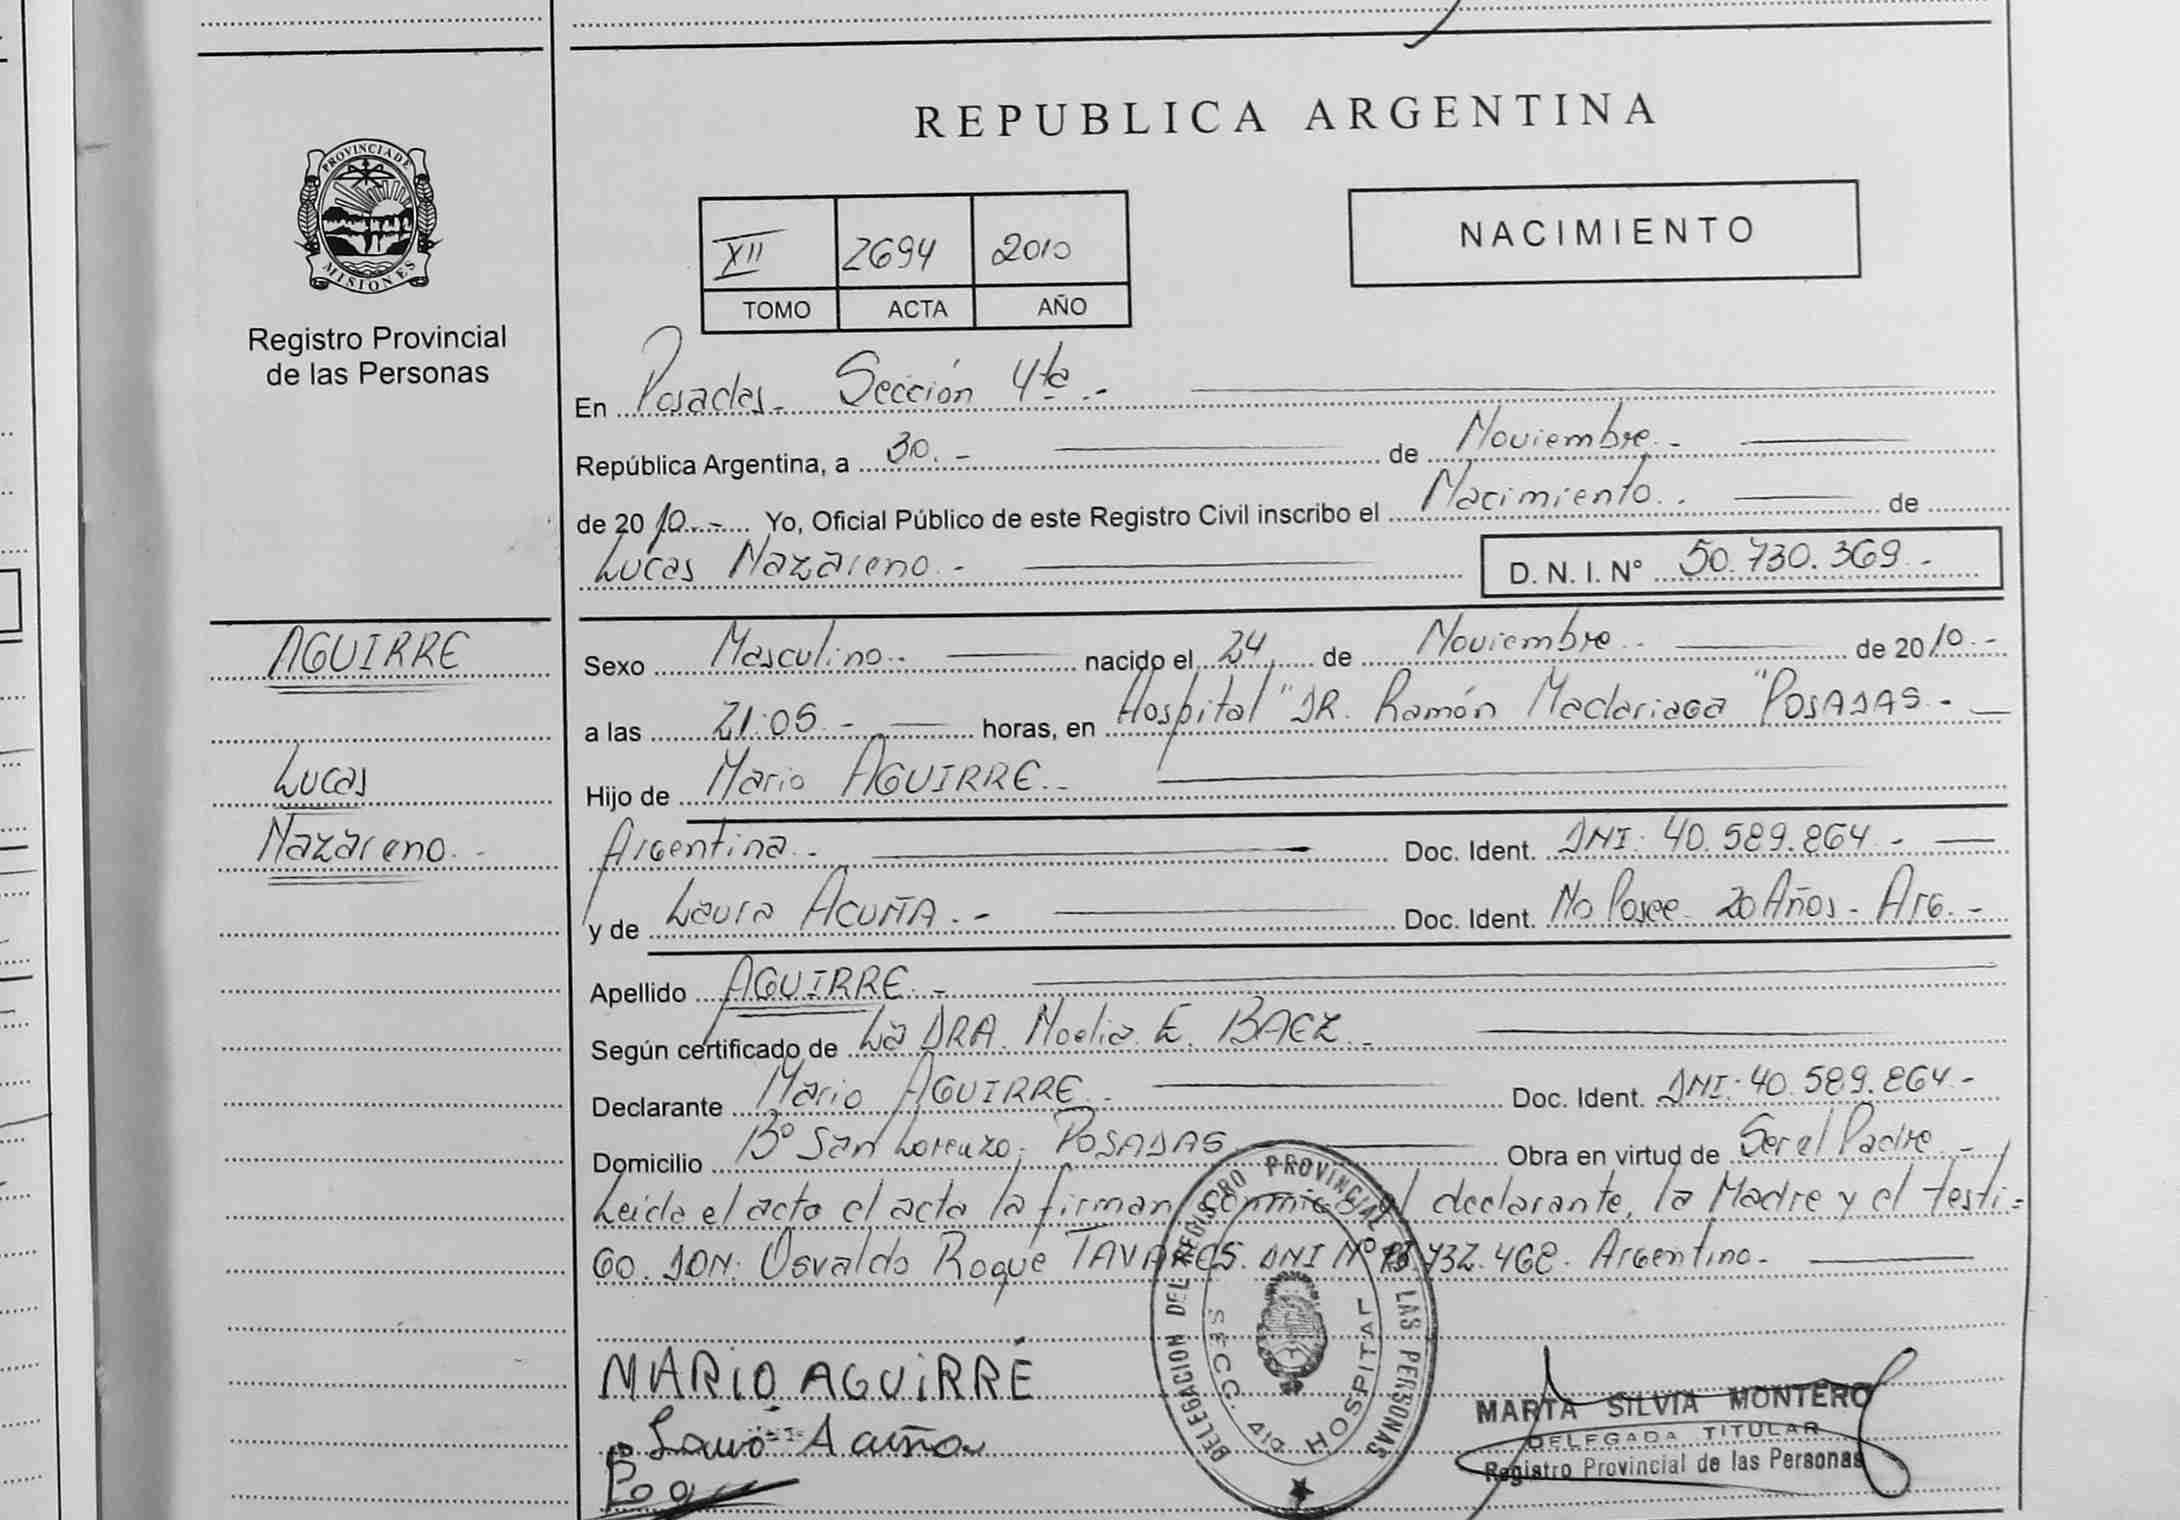 REPUBLICA ARGENTINA
PROVINCIA DE
MISIONES
Registro Provincial
de las Personas
XII 2694 2010
TOMO ACTA AÑO
NACIMIENTO
En Posadas - Sección 4ta.-
República Argentina, a 30.- de Noviembre.-
de 2010.- Yo, Oficial Público de este Registro Civil inscribo el Nacimiento.- de
Lucas Nazareno.-
D. N. I. Nº 50.730.369.-
AGUIRRE
Lucas
Nazareno.-
Sexo Masculino.- nacido el 24 de Noviembre.- de 2010.-
a las 21:05.- horas, en Hospital "DR. Ramón Madariaga" POSADAS.-
Hijo de Mario AGUIRRE.-
Argentina.- Doc. Ident. DNI: 40.589.864.-
y de Laura ACUÑA.- Doc. Ident. No Posee - 20 Años - Arg.-
Apellido AGUIRRE.-
Según certificado de La DRA. Noelia E. BAEZ.-
Declarante Mario AGUIRRE.- Doc. Ident. DNI: 40.589.864.-
Domicilio Bº San Lorenzo; POSADAS Obra en virtud de Ser el Padre.-
Leida el acto el acta la firman conmigo el declarante, la Madre y el testi=
go. DON. Osvaldo Roque TAVARES. DNI Nº .732.468. Argentino.-
DELEGACION DEL REGISTRO PROVINCIAL DE LAS PERSONAS
SECC. 4ta HOSPITAL
MARIO AGUIRRE
Acuña
MARTA SILVIA MONTERO
DELEGADA TITULAR
Registro Provincial de las Personas